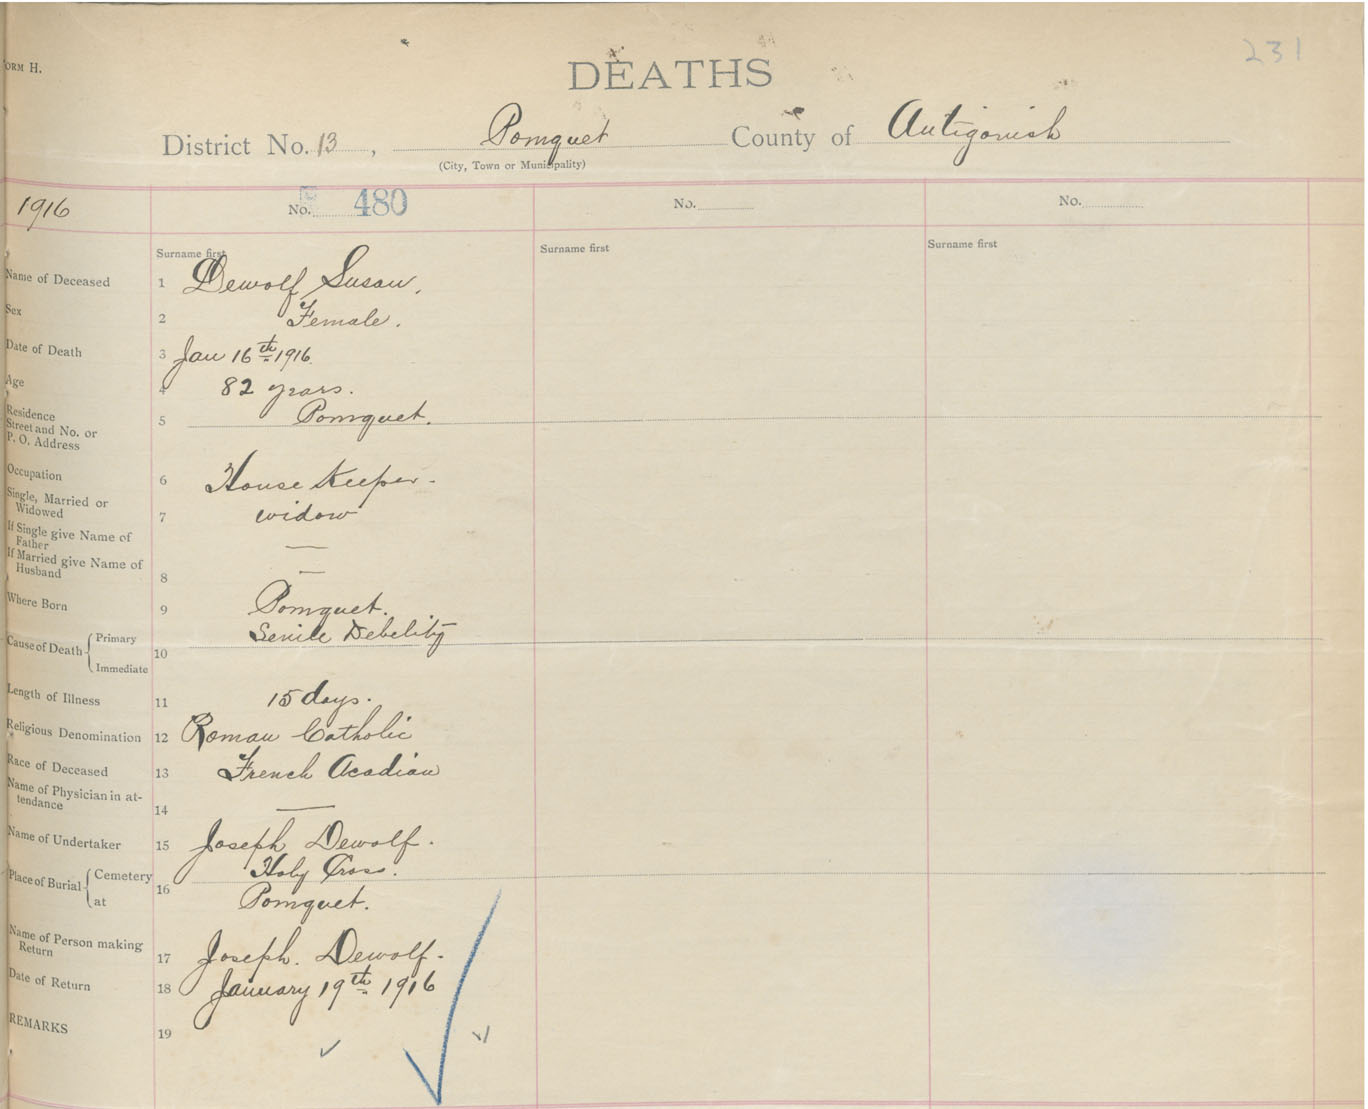 231
FORM H.
DEATHS
District No. 13, Pomquet County of Antigonish
(City, Town or Municipality)
1916 No. 480 No. No.
Surname first Surname first Surname first
Name of Deceased 1 Dewolf Susan.
Sex 2 Female.
Date of Death 3 Jan 16th 1916.
Age 4 82 years.
Residence
Street and No. or
P. O. Address 5 Pomquet.
Occupation 6 House Keeper-
Single, Married or
Widowed 7 widow
If Single give Name of
Father —
If Married give Name of
Husband 8 —
Where Born 9 Pomquet.
Cause of Death { Primary Senile Debelity
10
Immediate
Length of Illness 11 15 days.
Religious Denomination 12 Roman Catholic
Race of Deceased 13 French Acadian
Name of Physician in at-
tendance 14 —
Name of Undertaker 15 Joseph Dewolf.
Place of Burial { Cemetery Holy Cross.
16
at Pomquet.
Name of Person making
Return 17 Joseph. Dewolf-
Date of Return 18 January 19th 1916
REMARKS 19